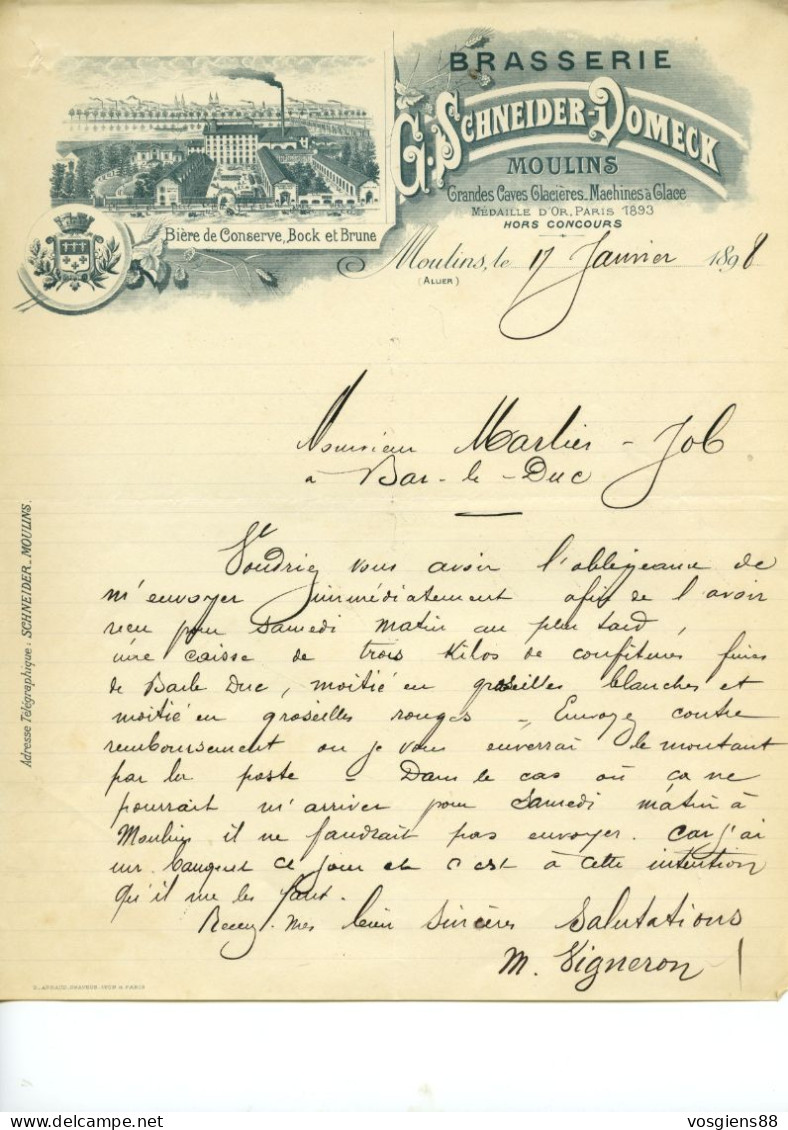 BRASSERIE
G. SCHNEIDER-DOMECK
MOULINS
Grandes Caves Glacières_Machines à Glace
MÉDAILLE D'OR, PARIS 1893
HORS CONCOURS
Bière de Conserve, Bock et Brune
Moulins, le 17 Janvier 1898
(ALLIER)
Monsieur Marlier - Job
a Bar-le-Duc
Adresse Télégraphique: SCHNEIDER_MOULINS.
Voudriez vous avoir l'obligeance de
m'envoyer immédiatement afin de l'avoir
reçu pour Samedi matin au plus tard,
une caisse de trois Kilos de confitures fines
de Bar le Duc, moitié en groseilles blanches et
moitié en groseilles rouges - Envoyez contre
remboursement ou je vous enverrai le montant
par la poste - Dans le cas où ça ne
pourrait m'arriver pour Samedi matin à
Moulins il ne faudrait pas envoyer. Car j'ai
un banquet ce jour et c'est à cette intention
qu'il me les faut.
Recevez mes bien sincères Salutations
M. Vigneron
vosgiens88